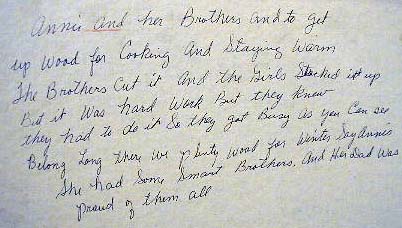 Annie and her Brothers and to get
up wood for Cooking And Staying Warm
The Brothers Cut it And the Girls Stacked it up
But it Was hard Work But they Knew
they had to do it So they got Busy as you Can see
Belong Long there we plenty wood for Winter Say Annie
She had Some Smart Brothers, And Her Dad Was
proud of them all